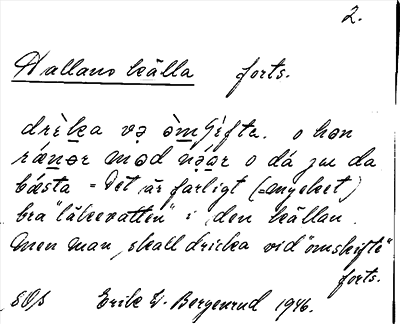 2.
Hallans källa forts.
drìḵa və òmy̌ifta. o hon
ráṉər mod nəár o dá ju da
bästa = Det är farligt (=mycket)
bra "läkevatten" i den källan.
Men man skall dricka vid "omskifte"
forts.
SOJs Erik W. Bergenrud 1946.